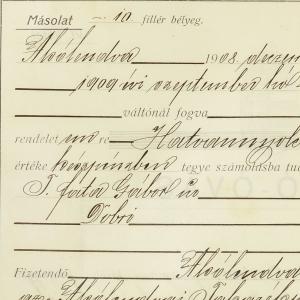 Másolat 10 fillér bélyeg.
Alsólendva 1908. deczem
1909 évi szeptember hó
váltónál fogva
rendelet re Hatvannyolc
értéke készpénzben tegye számolásba tud
T. Fata Gábor úr
Dobri
Fizetendő Alsólendva
Alsólendvai Takarék